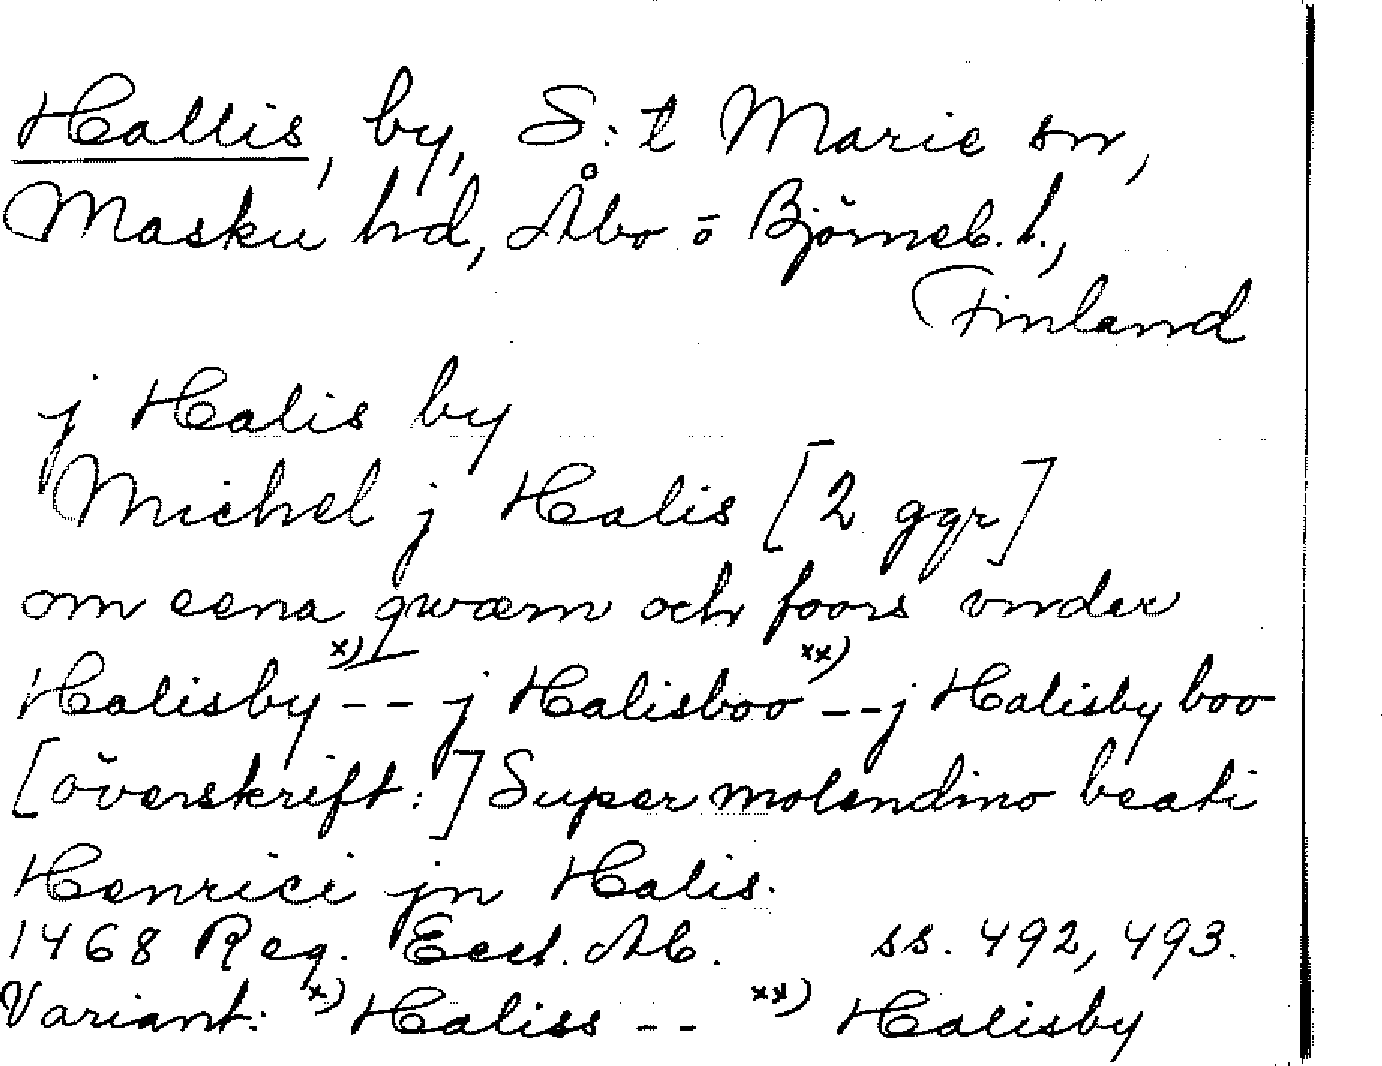 Hallis, by, S:t Marie sn,
Masku hd, Åbo o Björneb. l.,
Finland
j Halis by
Michel j Halis [2 ggr]
om eena qwærn och foors vnder
Halisby x) -- j Halisboo xx) -- j Halisby boo
[överskrift:] Super molendino beati
Henrici jn Halis.
1468 Reg. Eccl. Ab. ss. 492, 493.
Variant: x) Haliss -- xx) Halisby